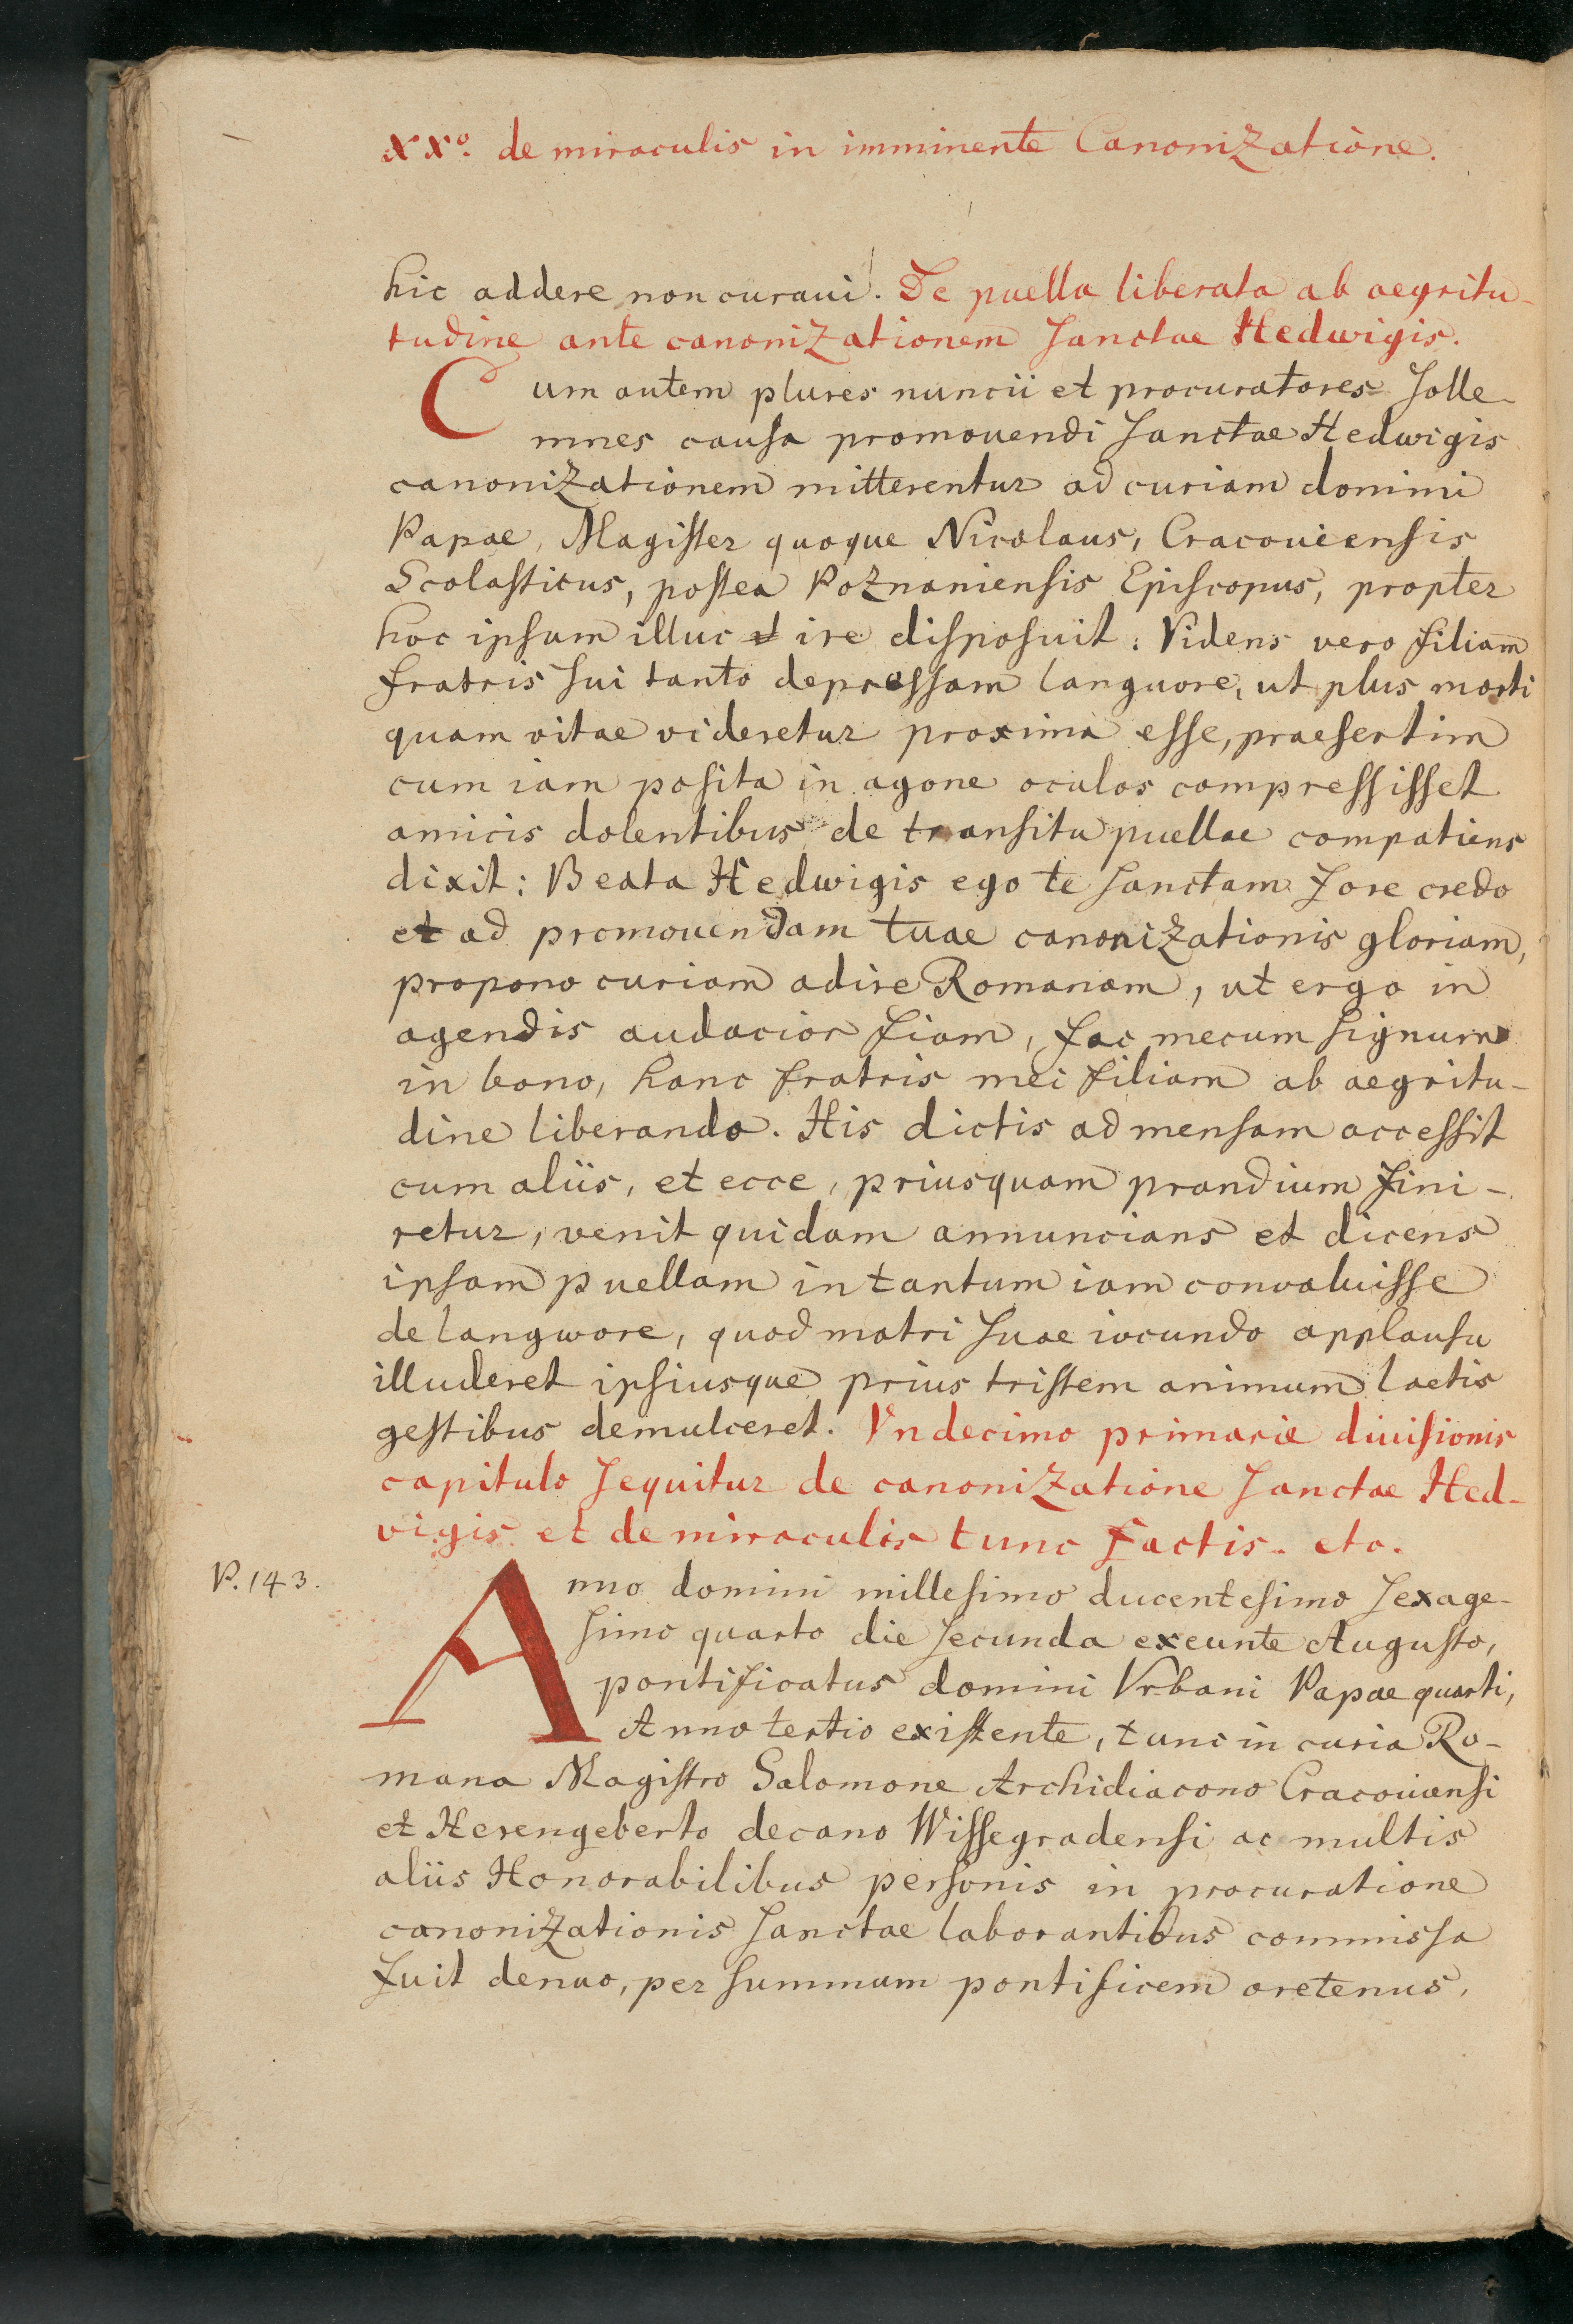 XXº. de miraculis in imminente Canonizatione.
hic addere non curaui. De puella liberata ab aegritu-
tudine ante canonizationem Sanctae Hedwigis.
Cum autem plures nuncii et procuratores solle-
mnes causa promouendi Sanctae Hedwigis
canonizationem mitterentur ad curiam domini
Papae, Magister quoque Nicolaus, Cracouiensis
Scolasticus, postea Poznaniensis Episcopus, propter
hoc ipsum illuc ire disposuit: Videns vero filiam
fratris sui tanto depressam languore, ut plus morti
quam vitae videretur proxima esse, praesertim
cum iam posita in agone oculos compressisset
amicis dolentibus de transitu puellae compatiens
dixit: Beata Hedwigis ego te sanctam fore credo
et ad promouendam tuae canonizationis gloriam,
propono curiam adire Romanam, ut ergo in
agendis audacior fiam, fac mecum signum
in bono, hanc fratris mei filiam ab aegritu-
dine liberando. His dictis ad mensam accessit
cum aliis, et ecce, priusquam prandium fini-
retur, venit quidam annuncians et dicens
ipsam puellam in tantum iam convaluisse
de langwore, quod matri suae iocundo applausu
illuderet ipsiusque prius tristem animum laetis
gestibus demulceret. Vndecimo primarie diuisionis
capitulo sequitur de canonizatione Sanctae Hed-
vigis et de miraculis tunc factis. etc.
P. 143.
Anno domini millesimo ducentesimo sexage-
simo quarto die secunda exeunte Augusto,
pontificatus domini Vrbani Papae quarti,
Anno tertio existente, tunc in curia Ro-
mana Magistro Salomone Archidiacono Cracouiensi
et Herengeberto decano Wissegradensi ac multis
aliis Honorabilibus personis in procuratione
canonizationis Sanctae laborantibus commissa
fuit denuo, per summum pontificem oretenus,